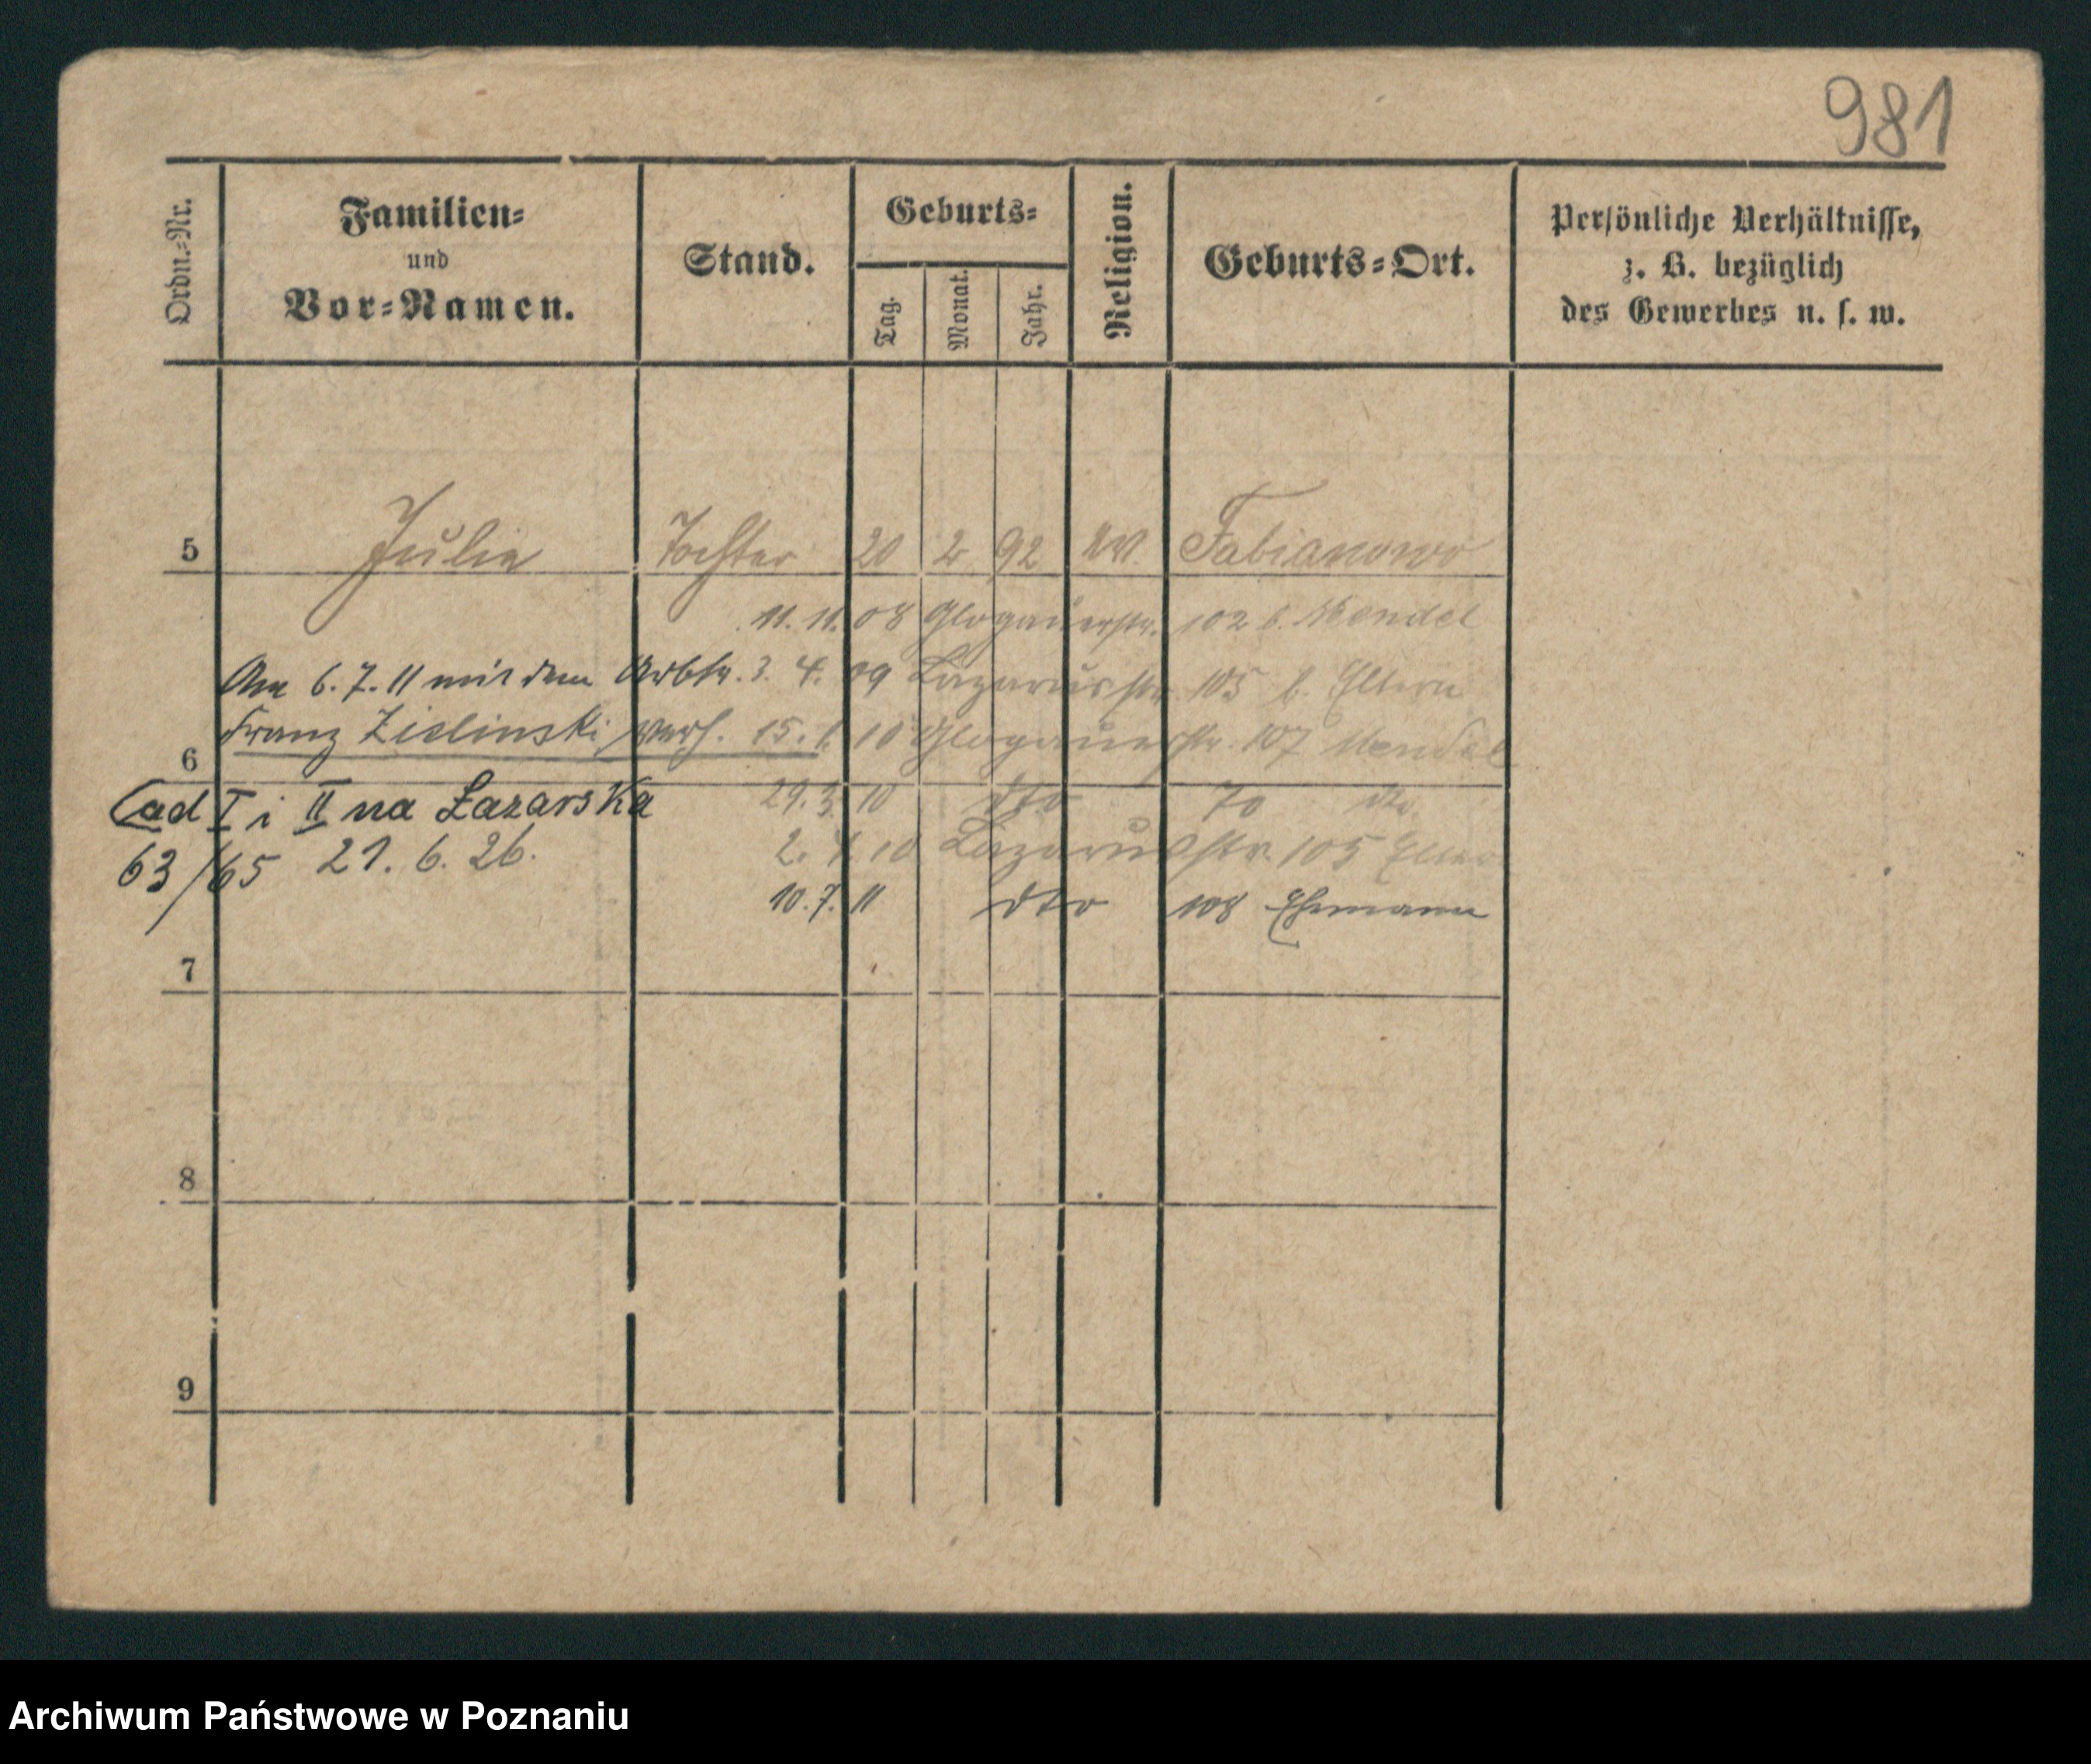 981
Ordn.-Nr.
Familien-
und
Vor-Namen.
Stand.
Geburts-
Tag.
Monat.
Jahr.
Religion.
Geburts-Ort.
Persönliche Verhältnisse,
z. B. bezüglich
des Gewerbes u. s. w.
5 Julie Tochter 20 2 92 Fabianowo
11. 11. 08 Glogauerstr. 102 b. Mendel
Am 6. 7. 11 mit dem Arbtr. 3. 4. 09 Lazarusstr. 105 b. Eltern
Franz Zielinski verh. 15. 1. 10 Glogauerstr. 107 Mendel
6
29. 3. 10 dto 70 dto
ad I i II na Łazarska
63/65 21. 6. 26.
2. 7. 10 Lazarusstr. 105 Eltern
10. 7. 11 dto 108 Ehemann
7
8
9
Archiwum Państwowe w Poznaniu